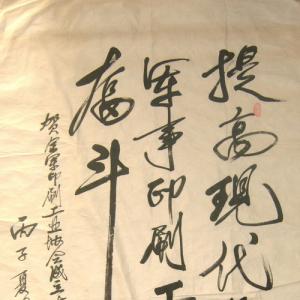 提高现代
军事印刷工
奋斗
贺全军印刷工业协会成立
丙子夏